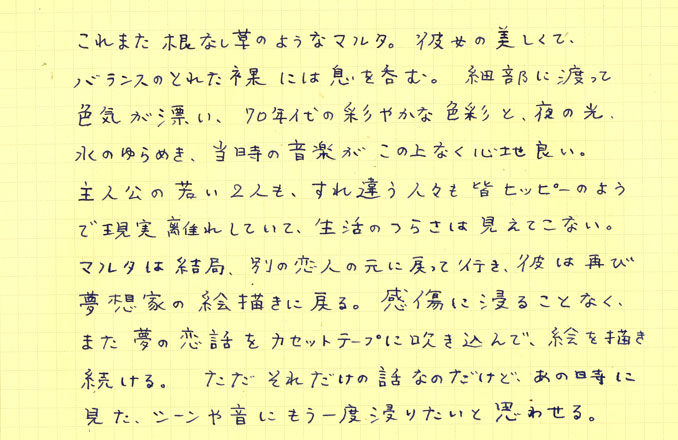 これまた根なし草のようなマルタ。彼女の美しくて、
バランスのとれた裸には息を呑む。細部に渡って
色気が漂い、70年代の彩やかな色彩と、夜の光、
水のゆらめき、当時の音楽がこの上なく心地良い。
主人公の若い2人も、すれ違う人々も皆ヒッピーのよう
で現実離れしていて、生活のつらさは見えてこない。
マルタは結局、別の恋人の元に戻って行き、彼は再び
夢想家の絵描きに戻る。感傷に浸ることなく、
また夢の恋話をカセットテープに吹き込んで、絵を描き
続ける。ただそれだけの話なのだけど、あの時に
見た、シーンや音にもう一度浸りたいと思わせる。